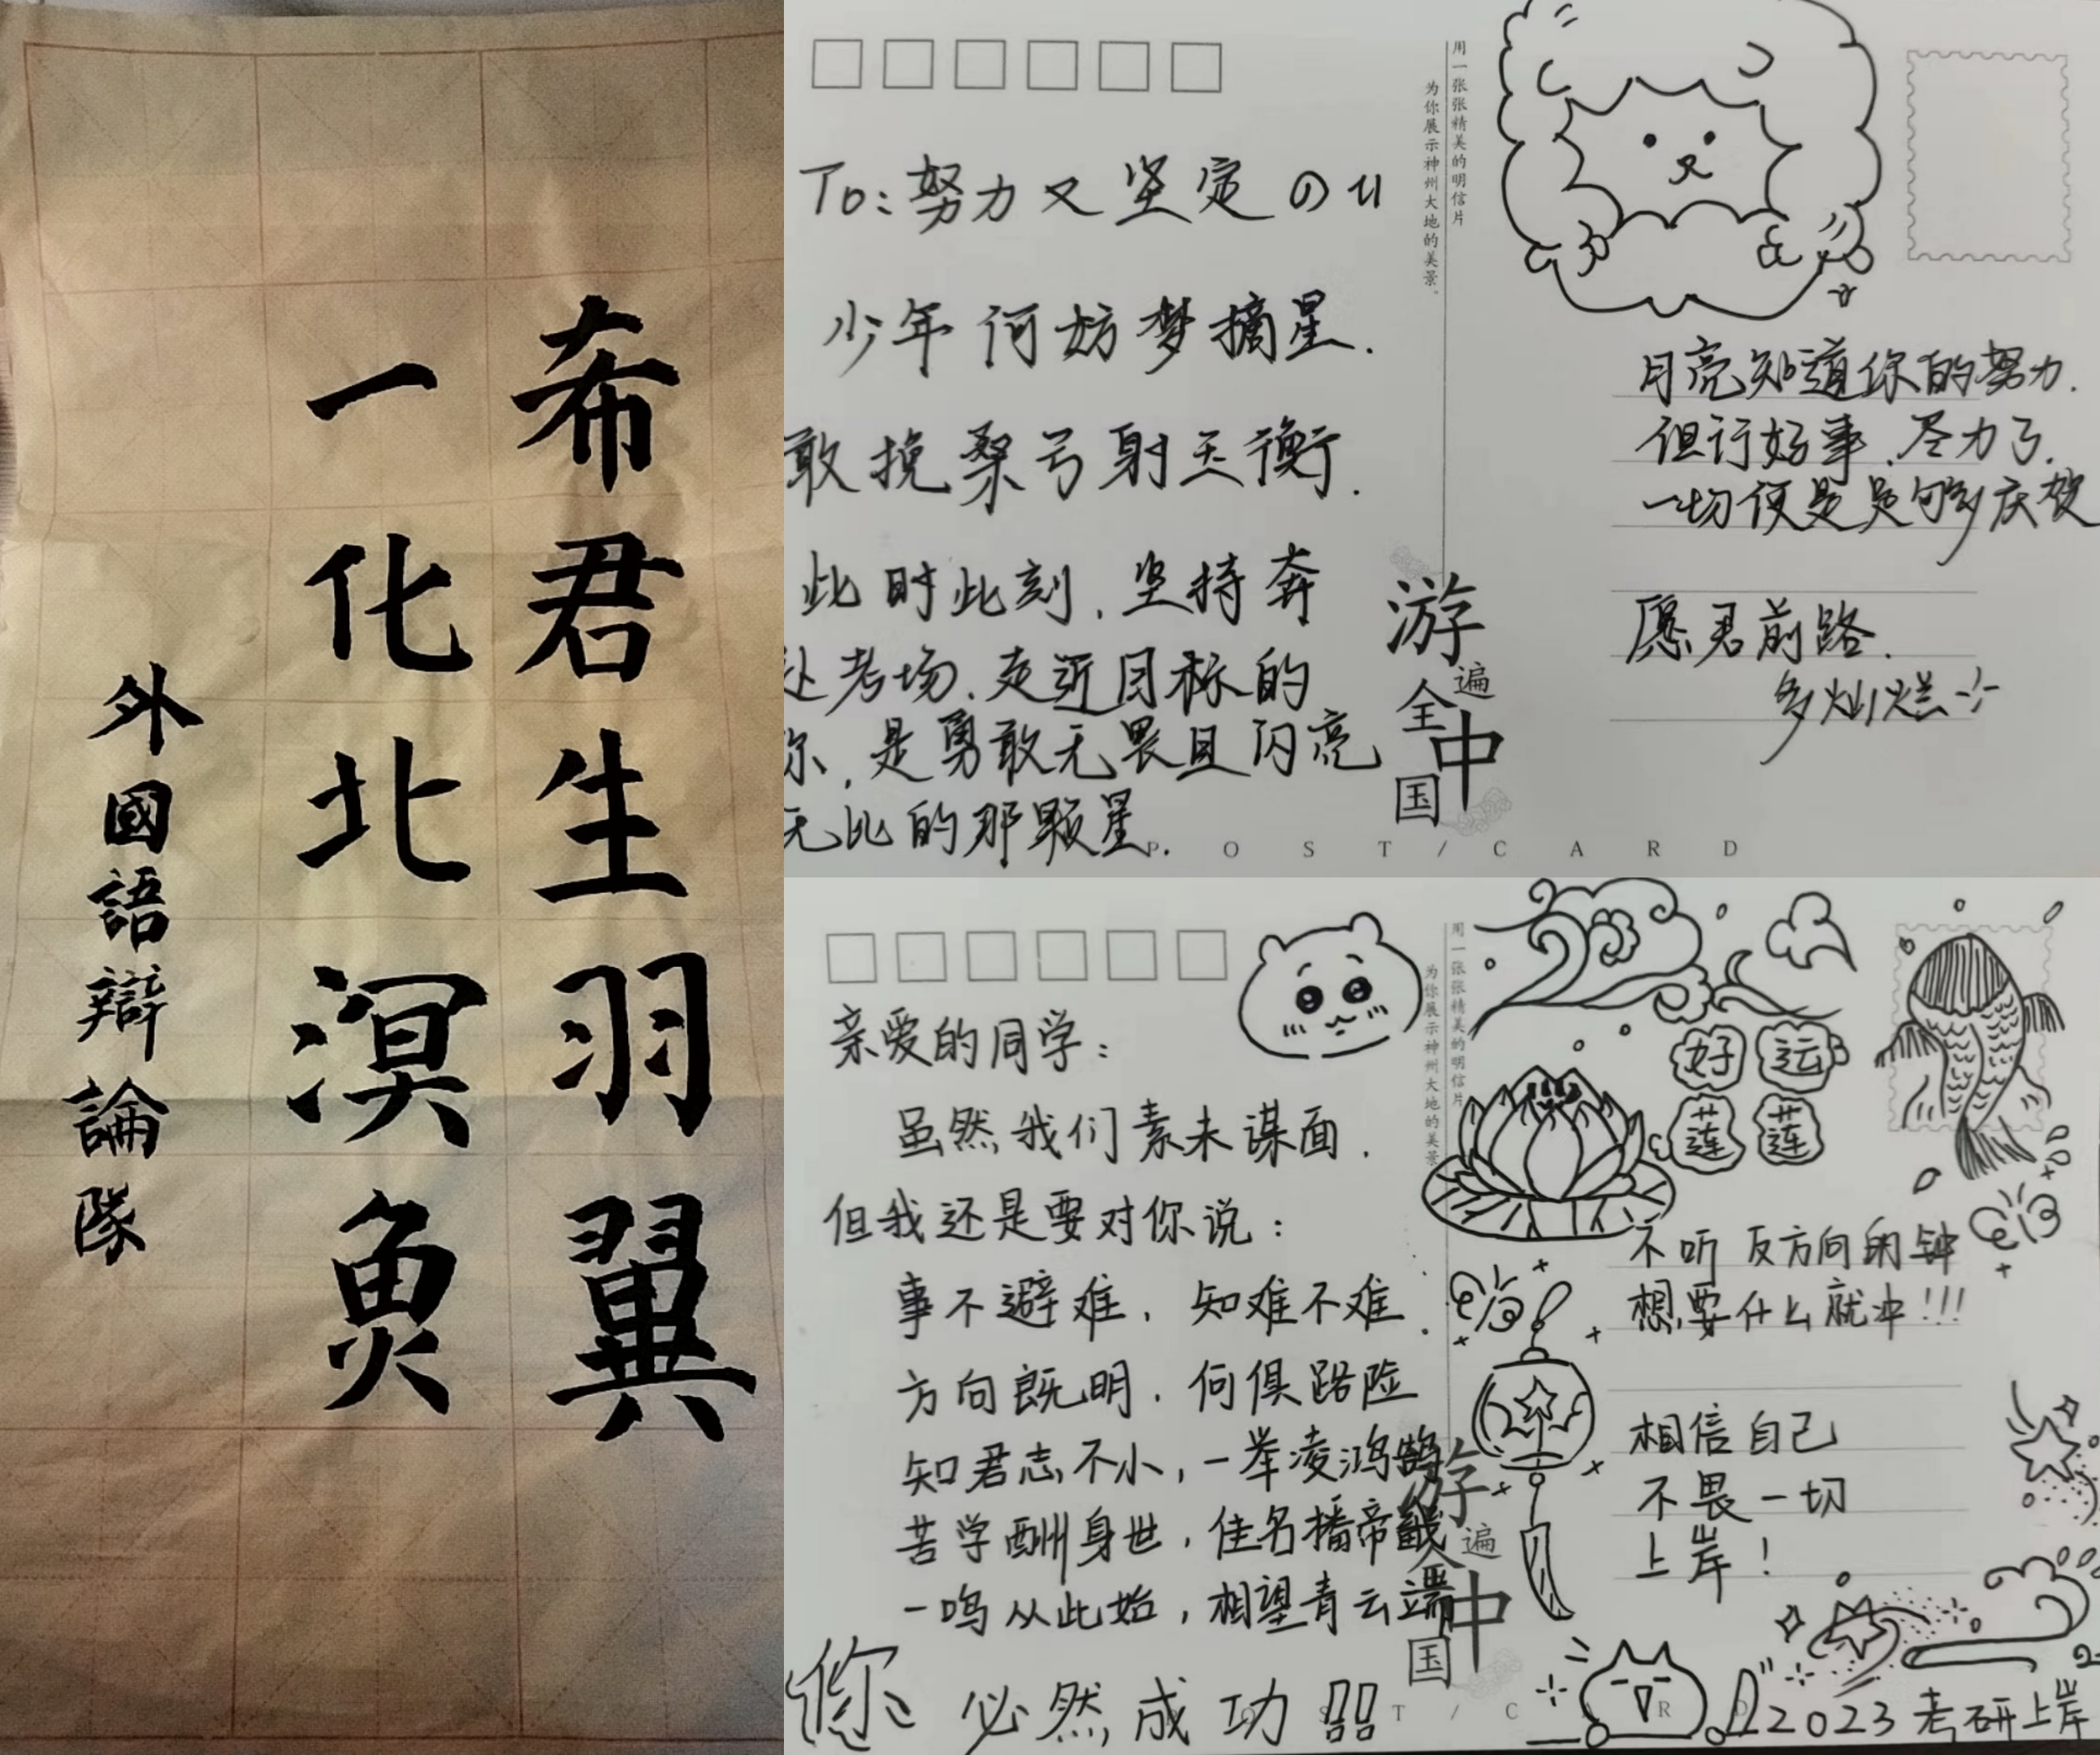 希君生羽翼
一化北溟魚
外國語辯論隊
用一张张精美的明信片
为你展示神州大地的美景。
To:努力又坚定のu
少年何妨梦摘星.
敢挽桑弓射玉衡.
此时此刻,坚持奔
赴考场.走近目标的
你,是勇敢无畏且闪亮
无比的那颗星.
月亮知道你的努力.
但行好事.尽力了.
一切便是足够多庆贺
愿君前路.
多灿烂
游
遍
全
中
国
POST/CARD
用一张张精美的明信片
为你展示神州大地的美景
亲爱的同学:
虽然我们素未谋面.
但我还是要对你说:
事不避难,知难不难.
方向既明.何惧路险
知君志不小,一举凌鸿鹄
苦学酬身世,佳名播帝畿
一鸣从此始,相望青云端
你必然成功!!
好运
莲莲
不听反方向的钟
想要什么就冲!!!
相信自己
不畏一切
上岸!
游
遍
全
中
国
2023考研上岸